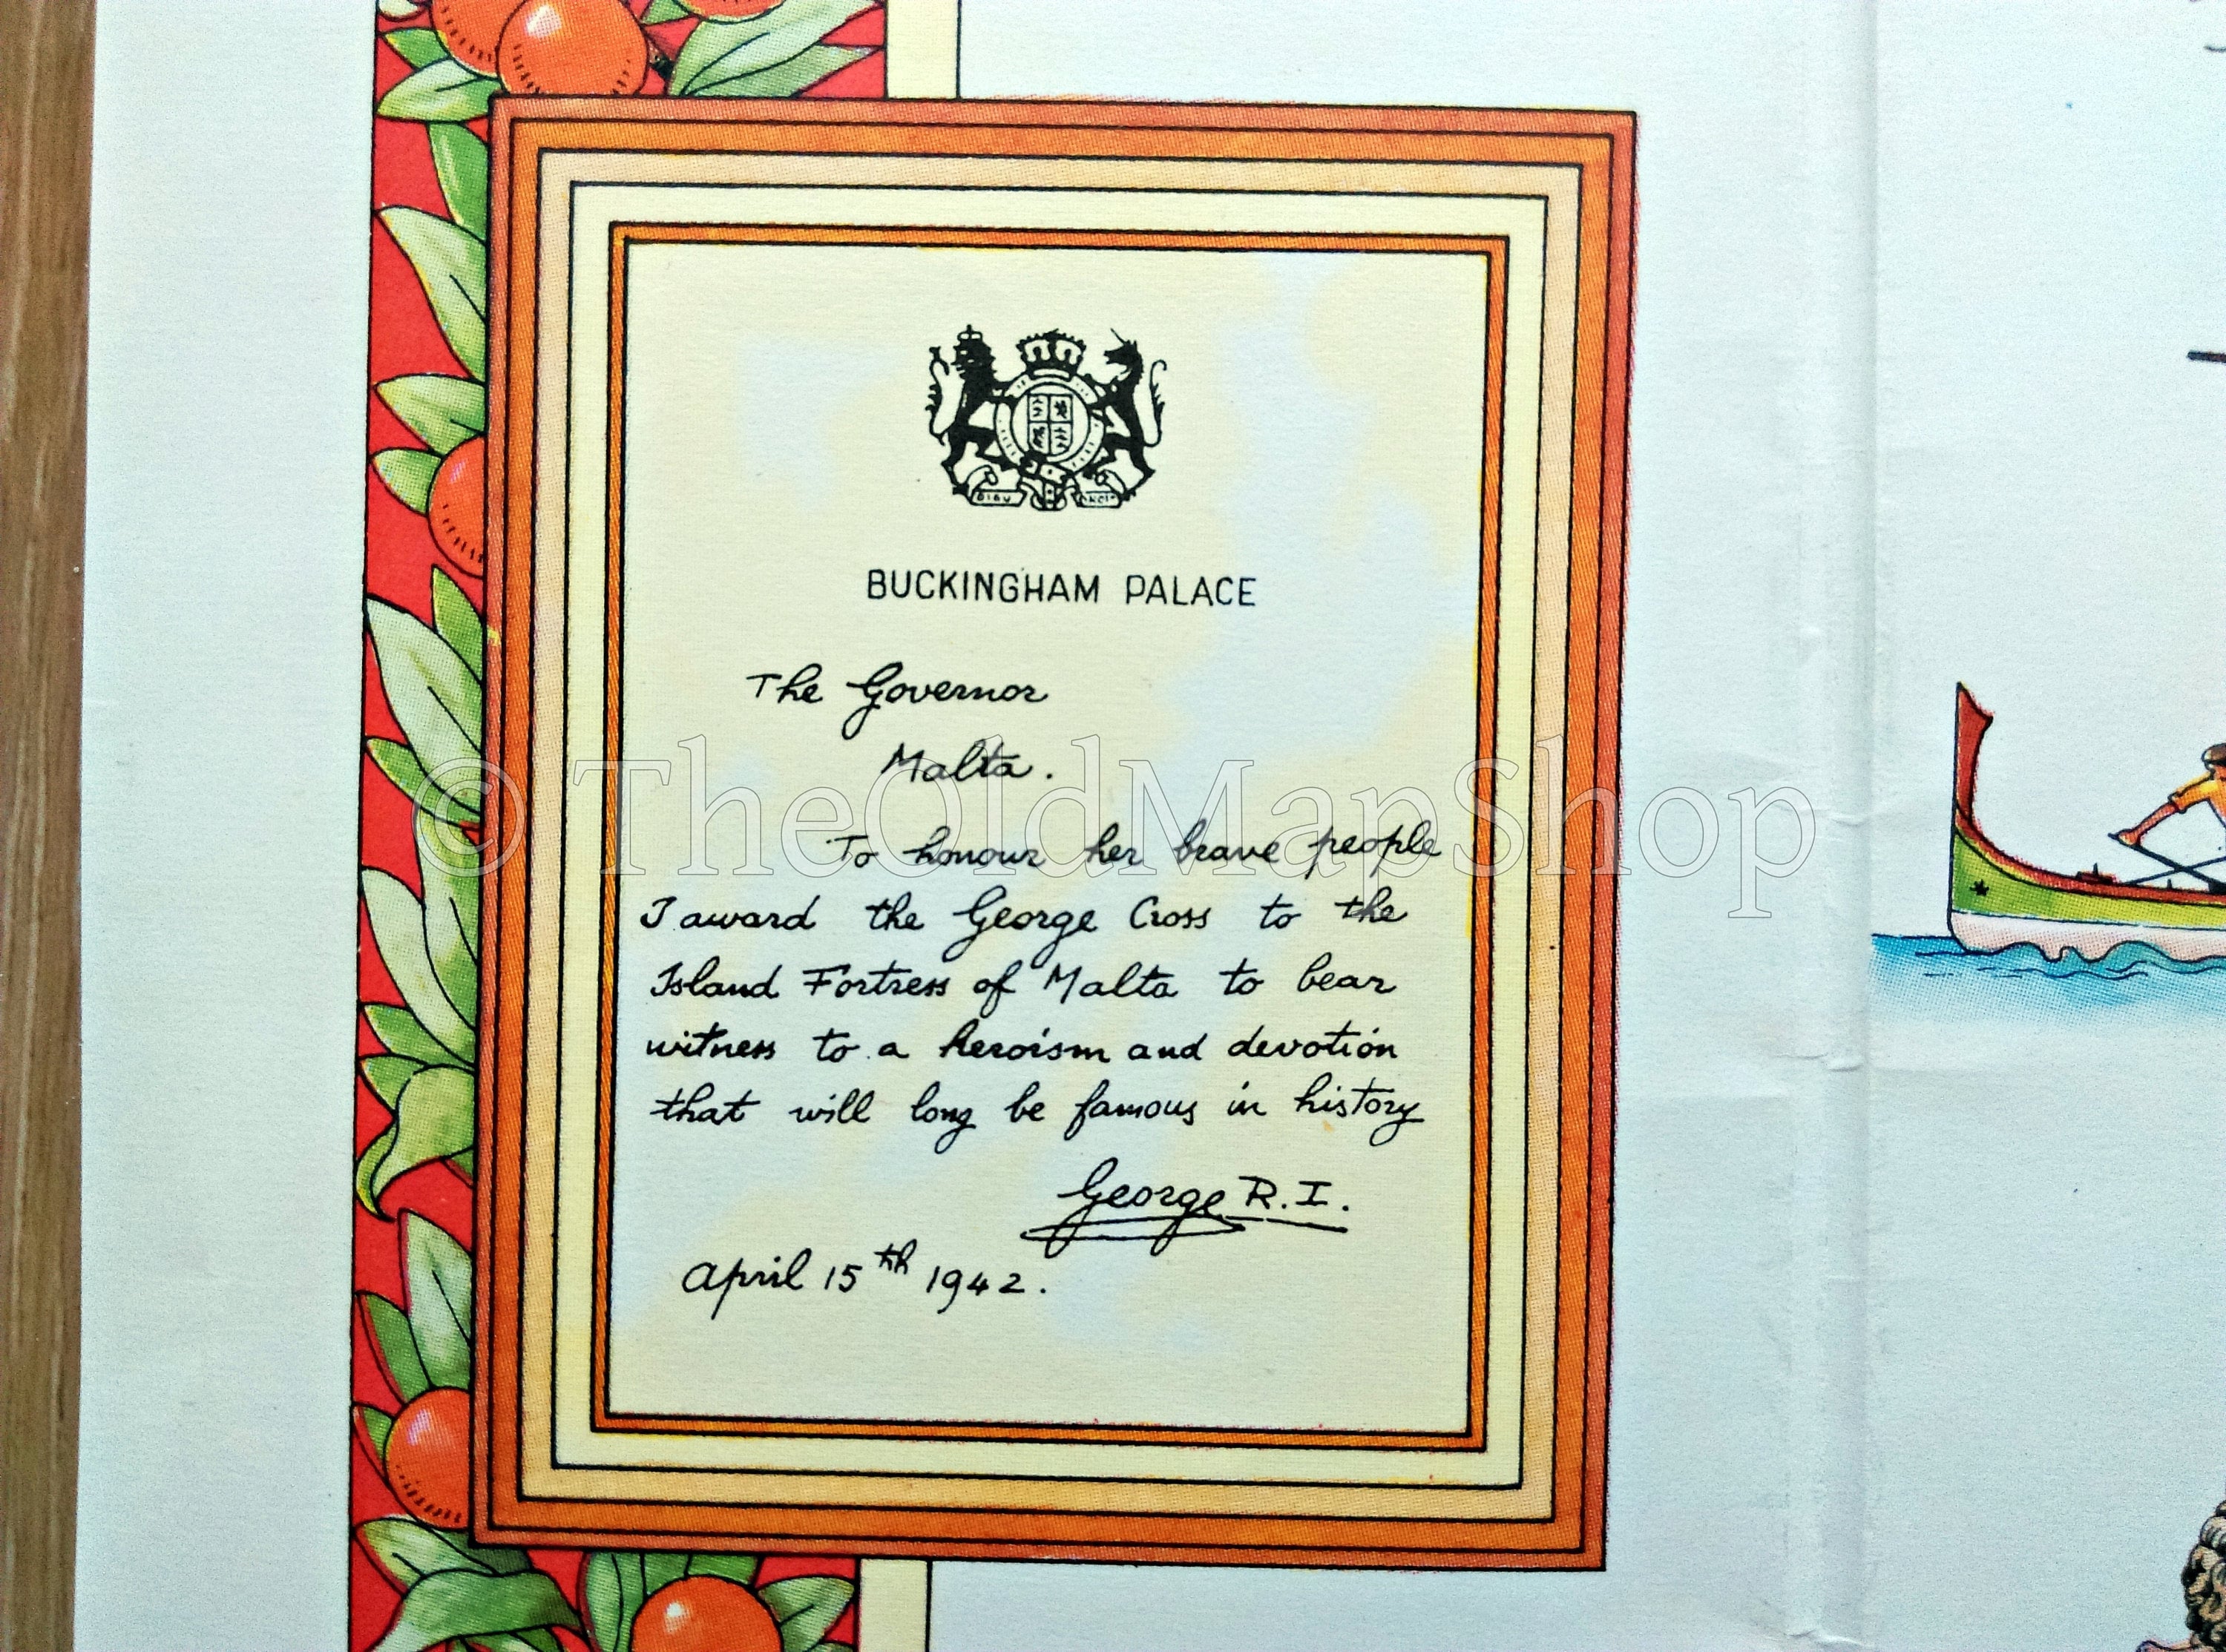 DIEU
BUCKINGHAM PALACE
The Governor
Malta.
To honour her brave people
I award the George Cross to the
Island Fortress of Malta to bear
witness to a heroism and devotion
that will long be famous in history
George R.I.
April 15th 1942.
© TheOldMapShop